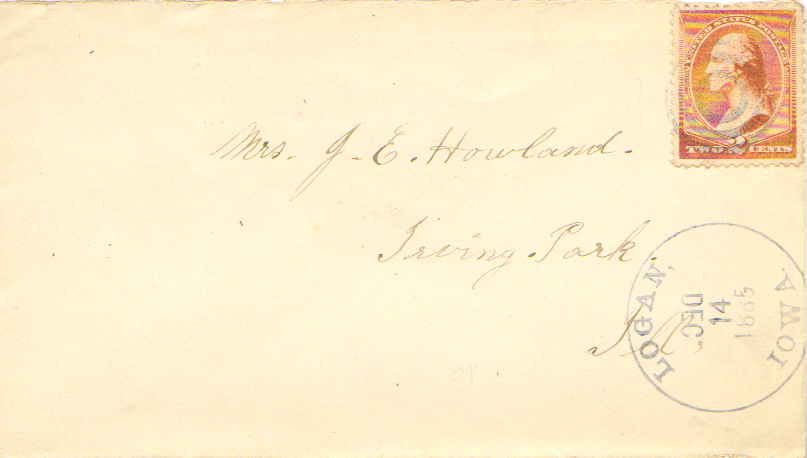 UNITED STATES POSTAGE
TWO 2 CENTS
Mrs. J. E. Howland.
Irving Park.
Ill.
LOGAN, IOWA.
DEC
14
1885